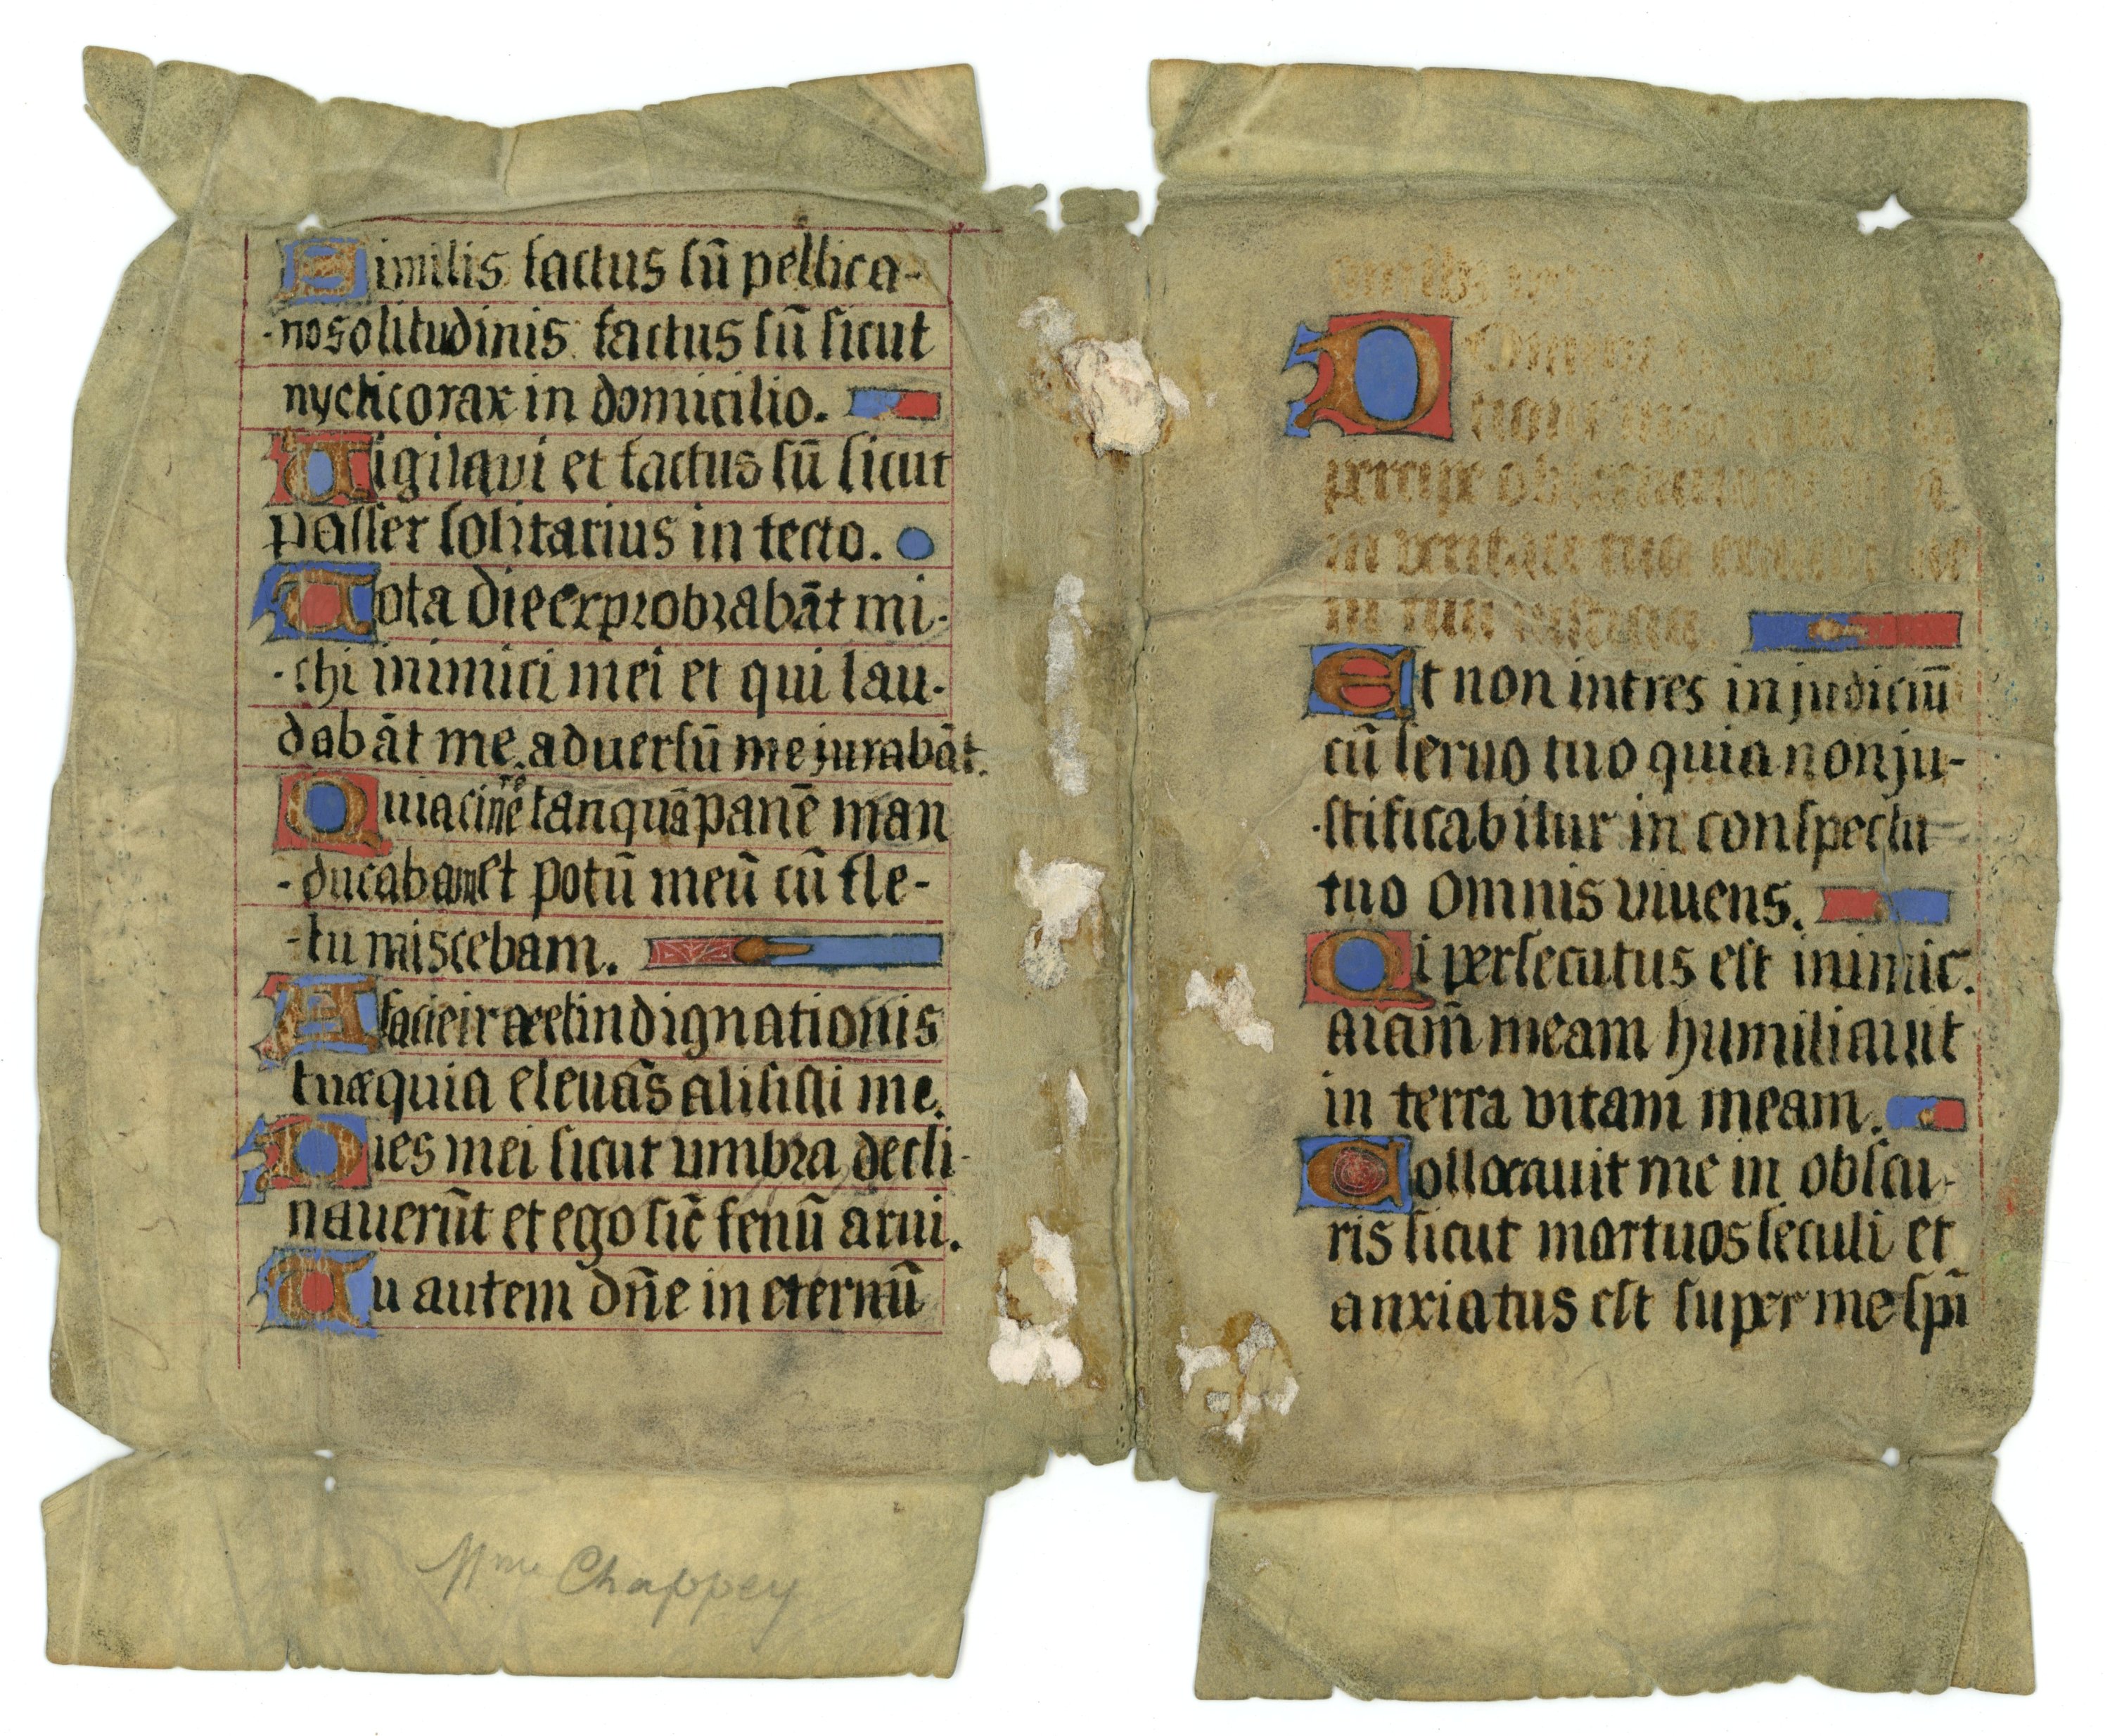 Similis factus sū pellica-
-no solitudinis: factus sū sicut
nycticorax in domicilio.
Vigilavi et factus sū sicut
passer solitarius in tecto.
Tota die exprobrabāt mi-
-chi inimici mei et qui lau-
dabāt me. adversū me jurabāt.
Quia cinerē tanquā panē man
-ducabam et potū meū cū fle-
-tu miscebam.
A facie iræ et indignationis
tuæ quia elevās alisisti me.
Dies mei sicut umbra decli-
naverūt et ego sic̄ fenū arui.
Tu autem dn̄e in eternū
Mme Chappey
D
percipe
in veritate tua
in tua
Et non intres in judiciū
cū seruo tuo quia non ju-
-stificabitur in conspectu
tuo omnis viuens.
Qi persecutus est inimic.
aiam̄ meam humiliauit
in terra vitam meam.
Collocauit me in obscu-
ris sicut mortuos seculi et
anxiatus est super me spī